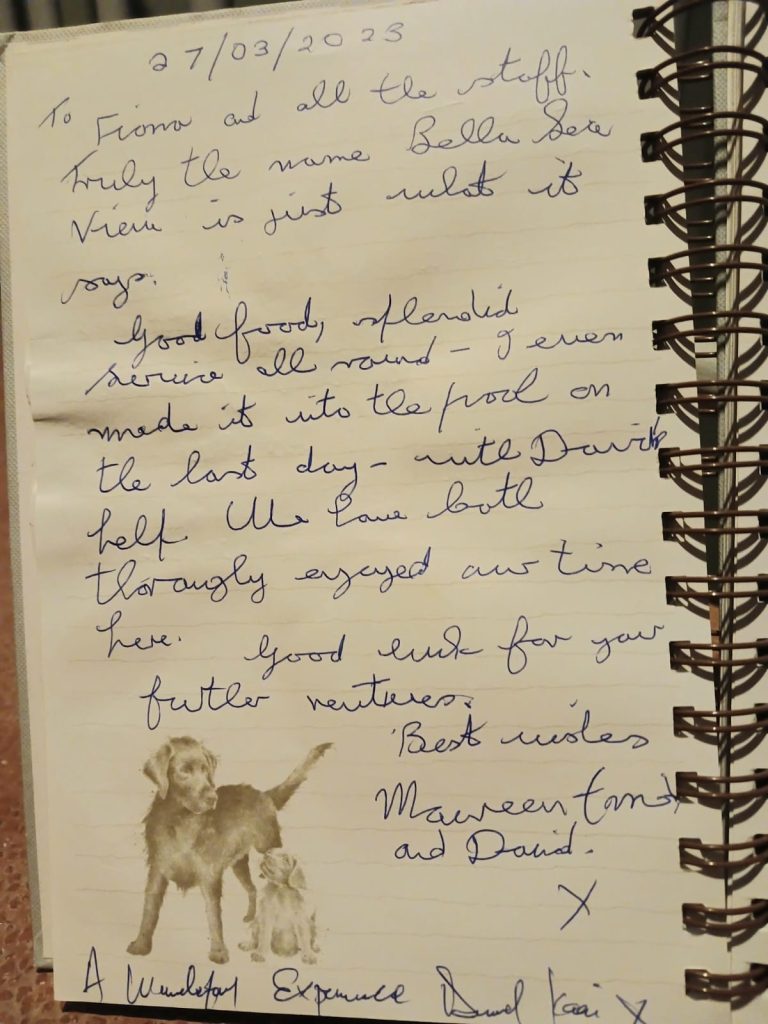 27/03/2023
To Fiona and all the staff.
Truly the name Bella Sera
View is just what it
says.
Good food, splendid
service all round - I even
made it into the pool on
the last day - with David's
help. We have both
thorougly enjoyed our time
here. Good luck for your
futher ventures.
Best wishes
Maureen
and David.
X
A Wonderful Experience X